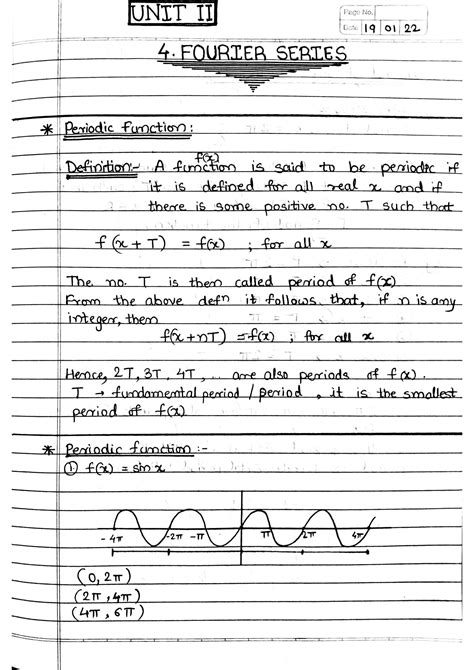 UNIT II
Page No.
Date 19 01 22
4. FOURIER SERIES
* Periodic Function:
Definition:- A function f(x) is said to be periodic if
it is defined for all real x and if
there is some positive no. T such that
f(x+T) = f(x) ; for all x
The no. T is then called period of f(x)
From the above defⁿ it follows that, if n is any
integer, then
f(x+nT) = f(x) ; for all x
Hence, 2T, 3T, 4T, ... are also periods of f(x).
T → fundamental period / period , it is the smallest
period of f(x)
* Periodic function :-
① f(x) = sin x
-4π -2π -π π 2π 4π
(0, 2π)
(2π, 4π)
(4π, 6π)